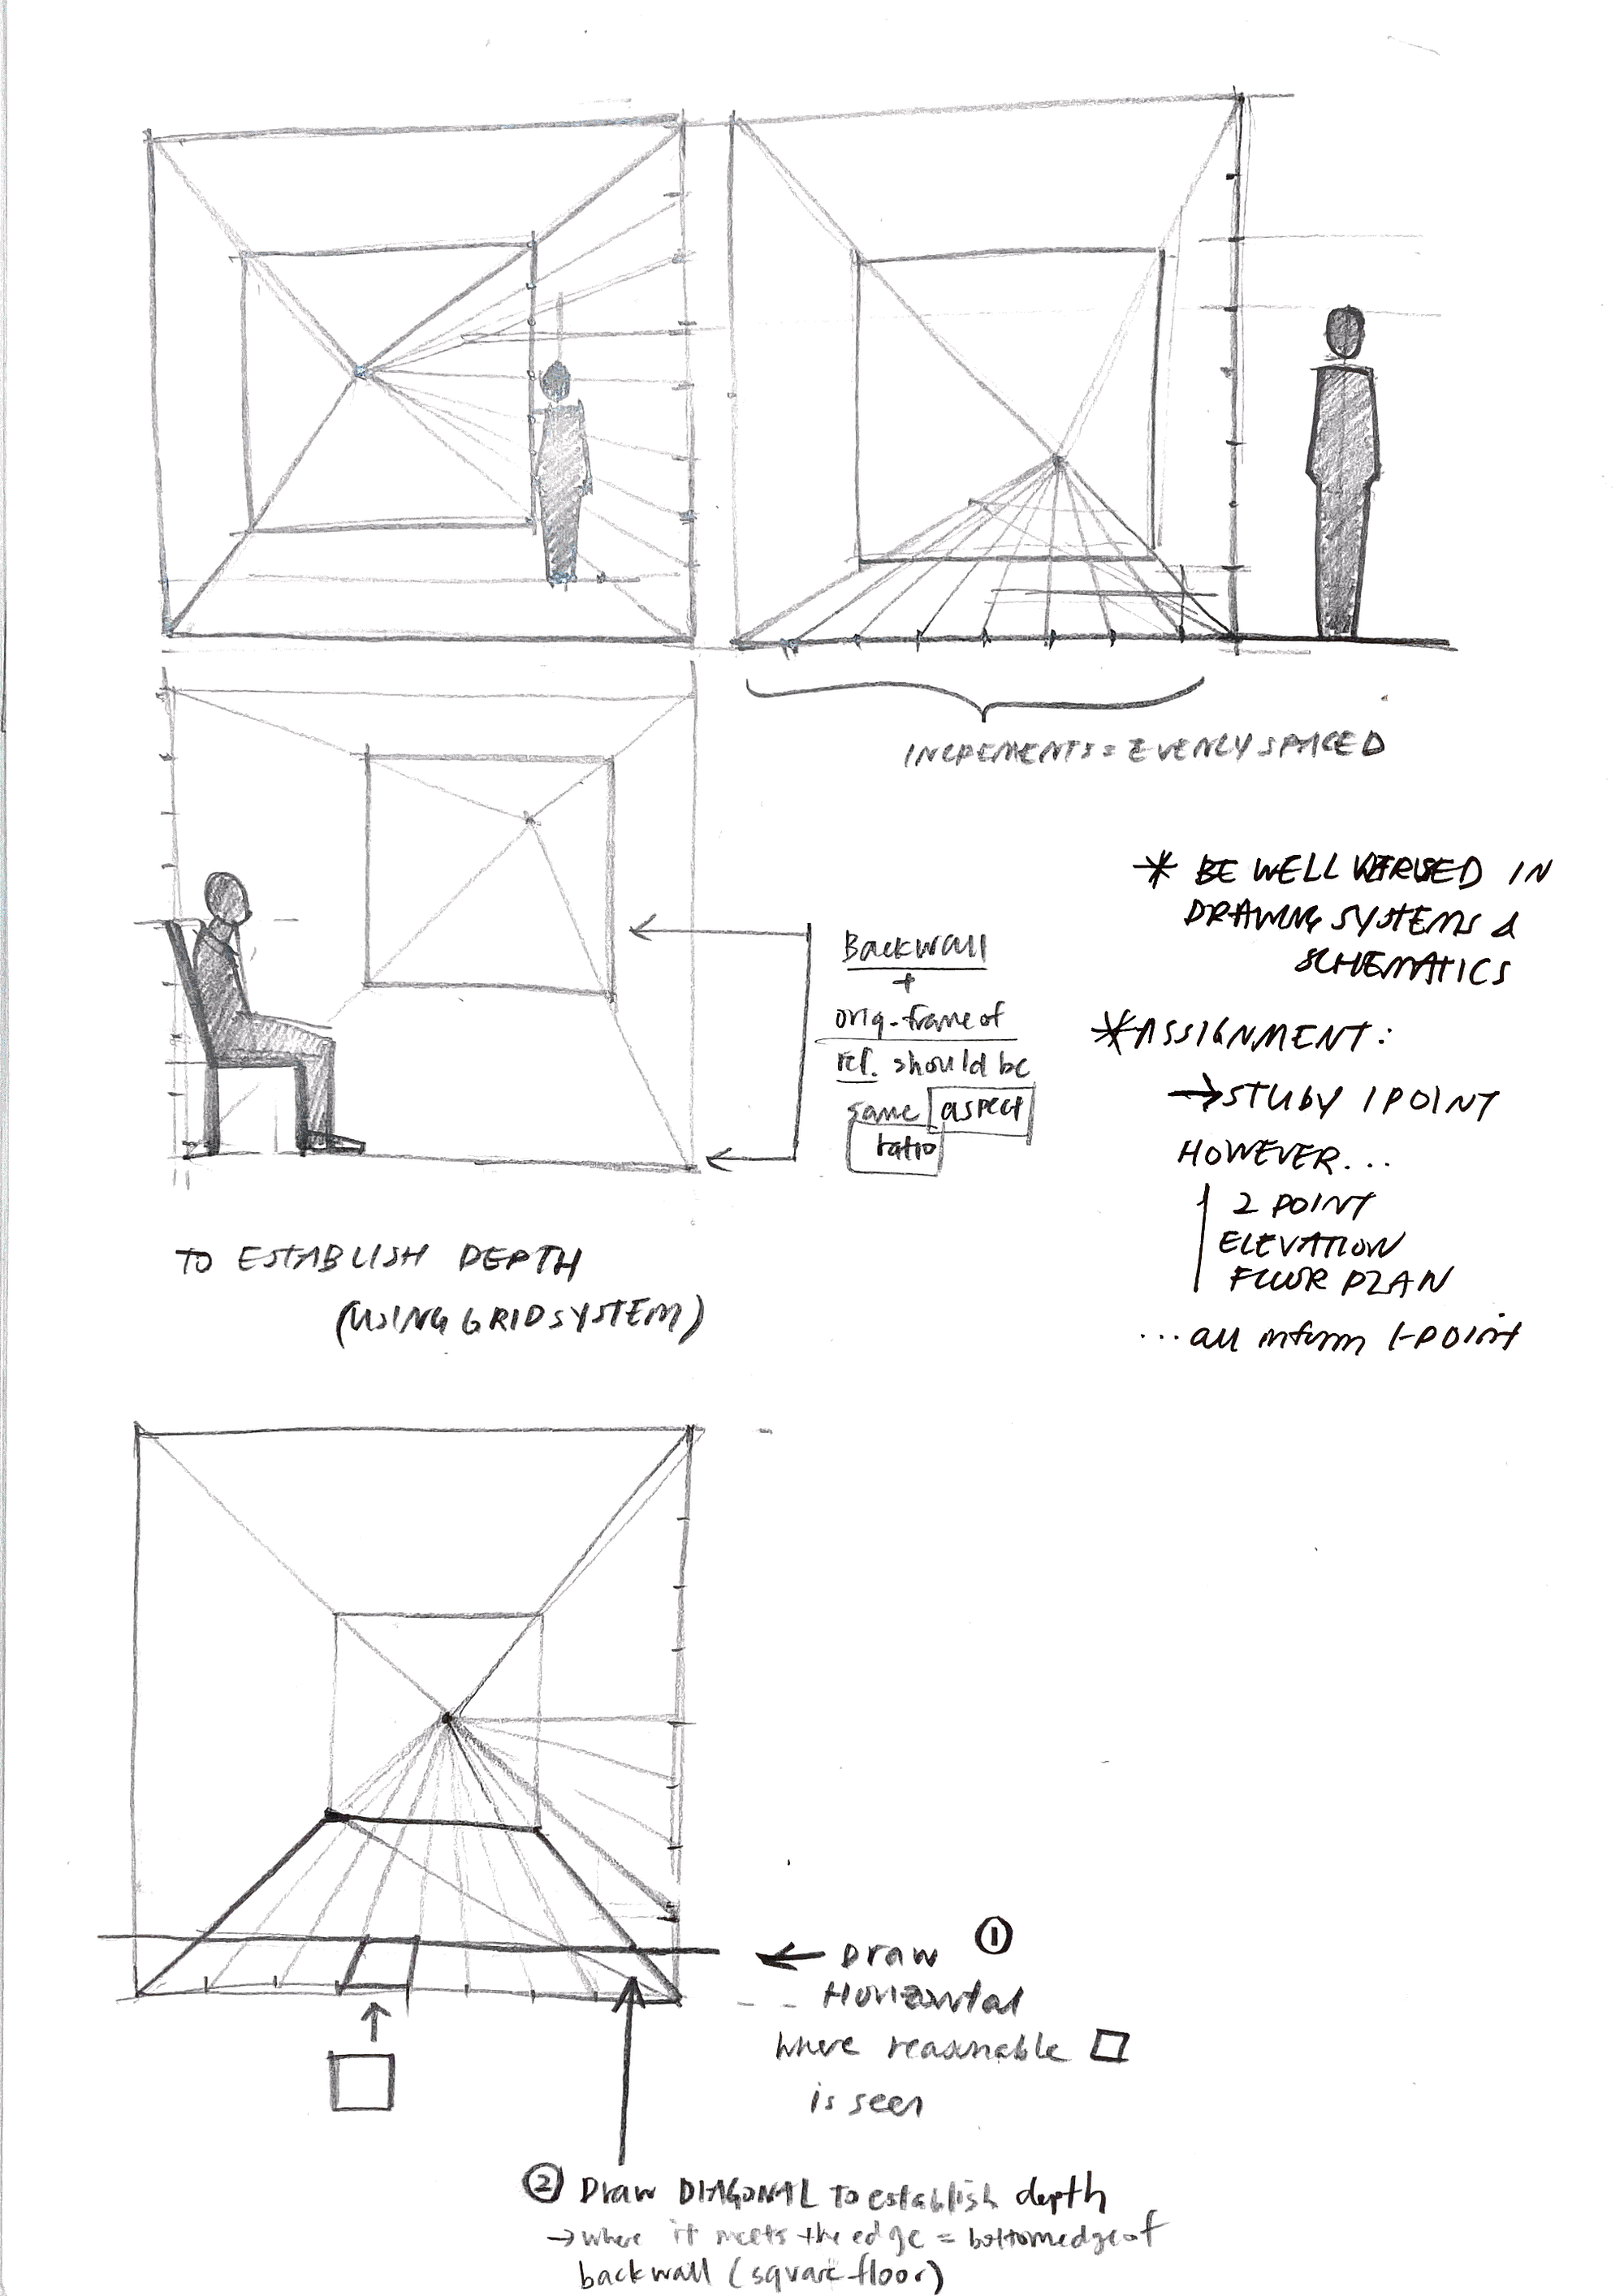 INCREMENTS = EVENLY SPACED
* BE WELL VERSED IN
DRAWING SYSTEMS &
SCHEMATICS
Backwall
+
orig. frame of
ref. should be
same aspect
ratio
* ASSIGNMENT:
→ STUDY 1 POINT
HOWEVER...
2 POINT
ELEVATION
FLOOR PLAN
... all inform 1-POINT
TO ESTABLISH DEPTH
(USING GRID SYSTEM)
← Draw ①
Horizontal
where reasonable □
is seen
② Draw DIAGONAL To establish depth
→ where it meets the edge = bottom edge of
backwall (square floor)